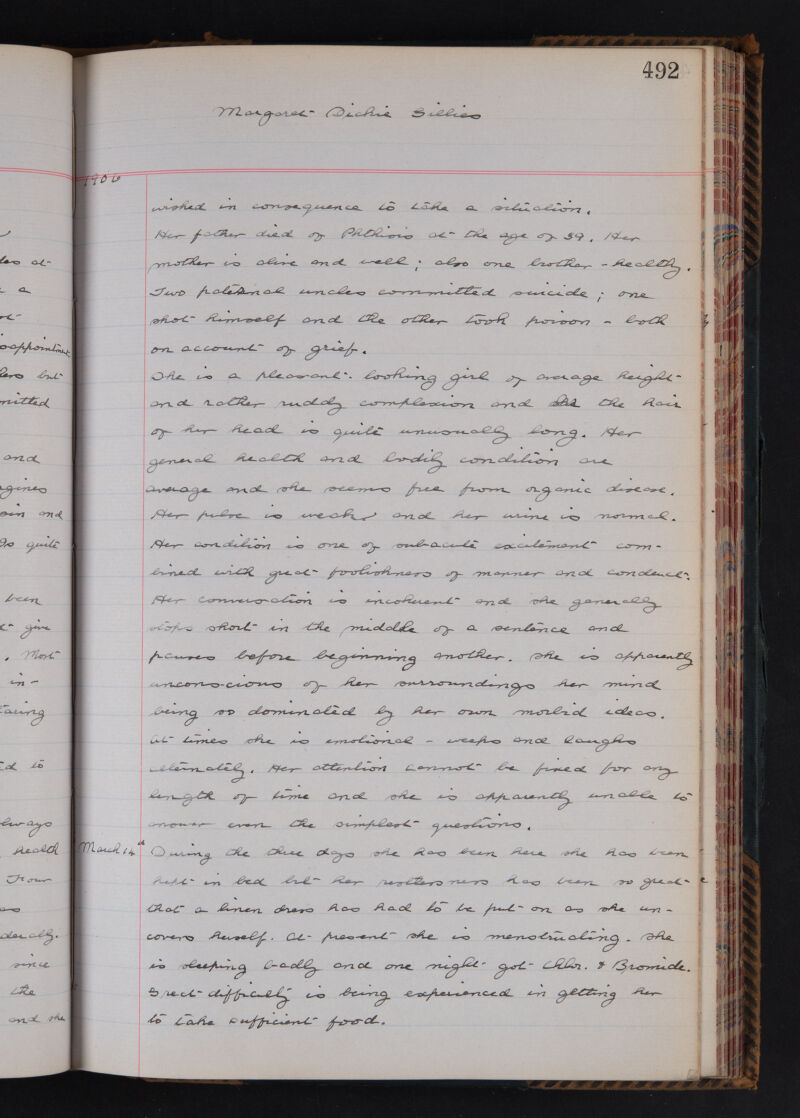 492
Margaret Dickie Gillies
1906
wished in consequence to take a situation.
Her father died of Phthisis at the age of 39. Her
mother is alive and well; also one brother - healthy.
Two paternal uncles committed suicide; one
shot himself and the other took poison - both
on account of grief.
She is a pleasant-looking girl of average height
and rather ruddy complexion and the hair
of her head is quite unusually long. Her
general health and bodily condition are
average and she seems free from organic disease.
Her pulse is weak and her urine is normal.
Her condition is one of subacute excitement com-
bined with great foolishness of manner and conduct.
Her conversation is incoherent and she generally
stops short in the middle of a sentence and
pauses before beginning another. She is apparently
unconscious of her surroundings her mind
being so dominated by her own morbid ideas.
At times she is emotional - weeps and laughs
alternately. Her attention cannot be fixed for any
length of time and she is apparently unable to
answer even the simplest questions.
March 14th During the three days she has been here she has been
kept in bed but her restlessness has been so great
that a linen dress has had to be put on as she un-
covers herself. At present she is menstruating. She
is sleeping badly and one night got Chlor. & Bromide.
Great difficulty is being experienced in getting her
to take sufficient food.
des at
a
sappointment
hers but
mitted
and
agines
sin and
Is quite
been
give
. Most
in-
tacing
ed to
lways
health
Four
derably.
since
the
and she